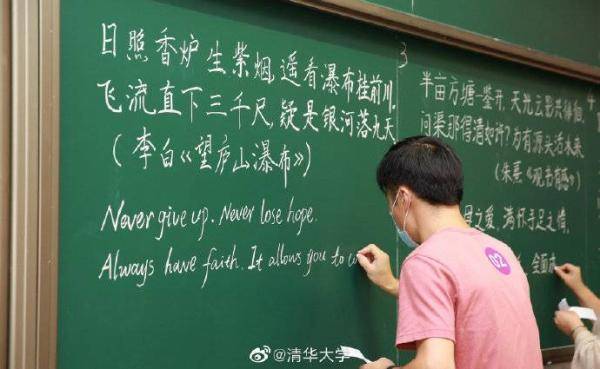 日照香炉生紫烟,遥看瀑布挂前川.
飞流直下三千尺,疑是银河落九天
(李白《望庐山瀑布》)
Never give up. Never lose hope.
Always have faith. It allows you to
3
半亩方塘一鉴开,天光云影共徘徊,
问渠那得清如许?为有源头活水来
(朱熹《观书有感》)
之爱,满怀手足之情,
全面
4
02
@清华大学